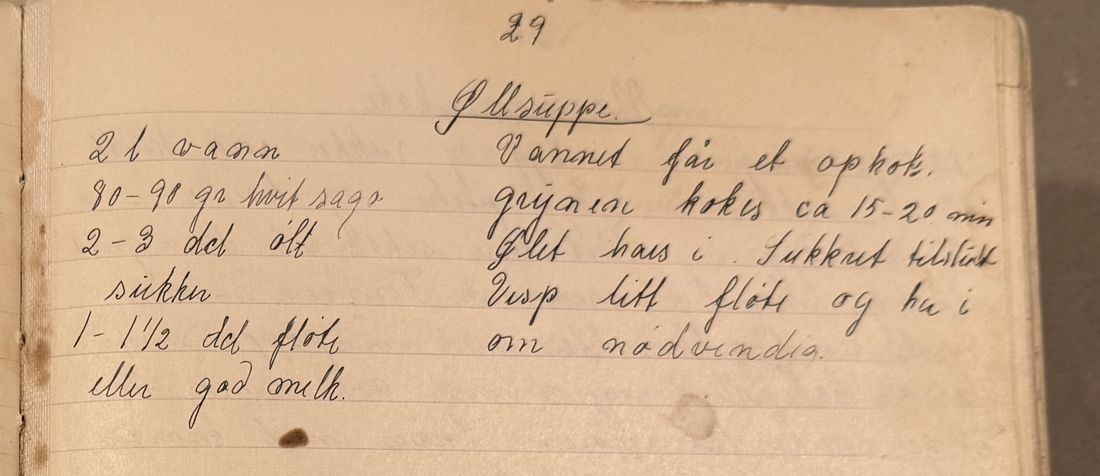 29
Øllsuppe.
2 l vann
80-90 gr hvit sago
2-3 dcl øll
sukker
1-1 1/2 dcl fløte
eller god melk.
Vannet får et opkok.
grynen kokes ca 15-20 min
Ølet haes i. Sukkret tilslutt
Visp litt fløte og ha i
om nødvendig.